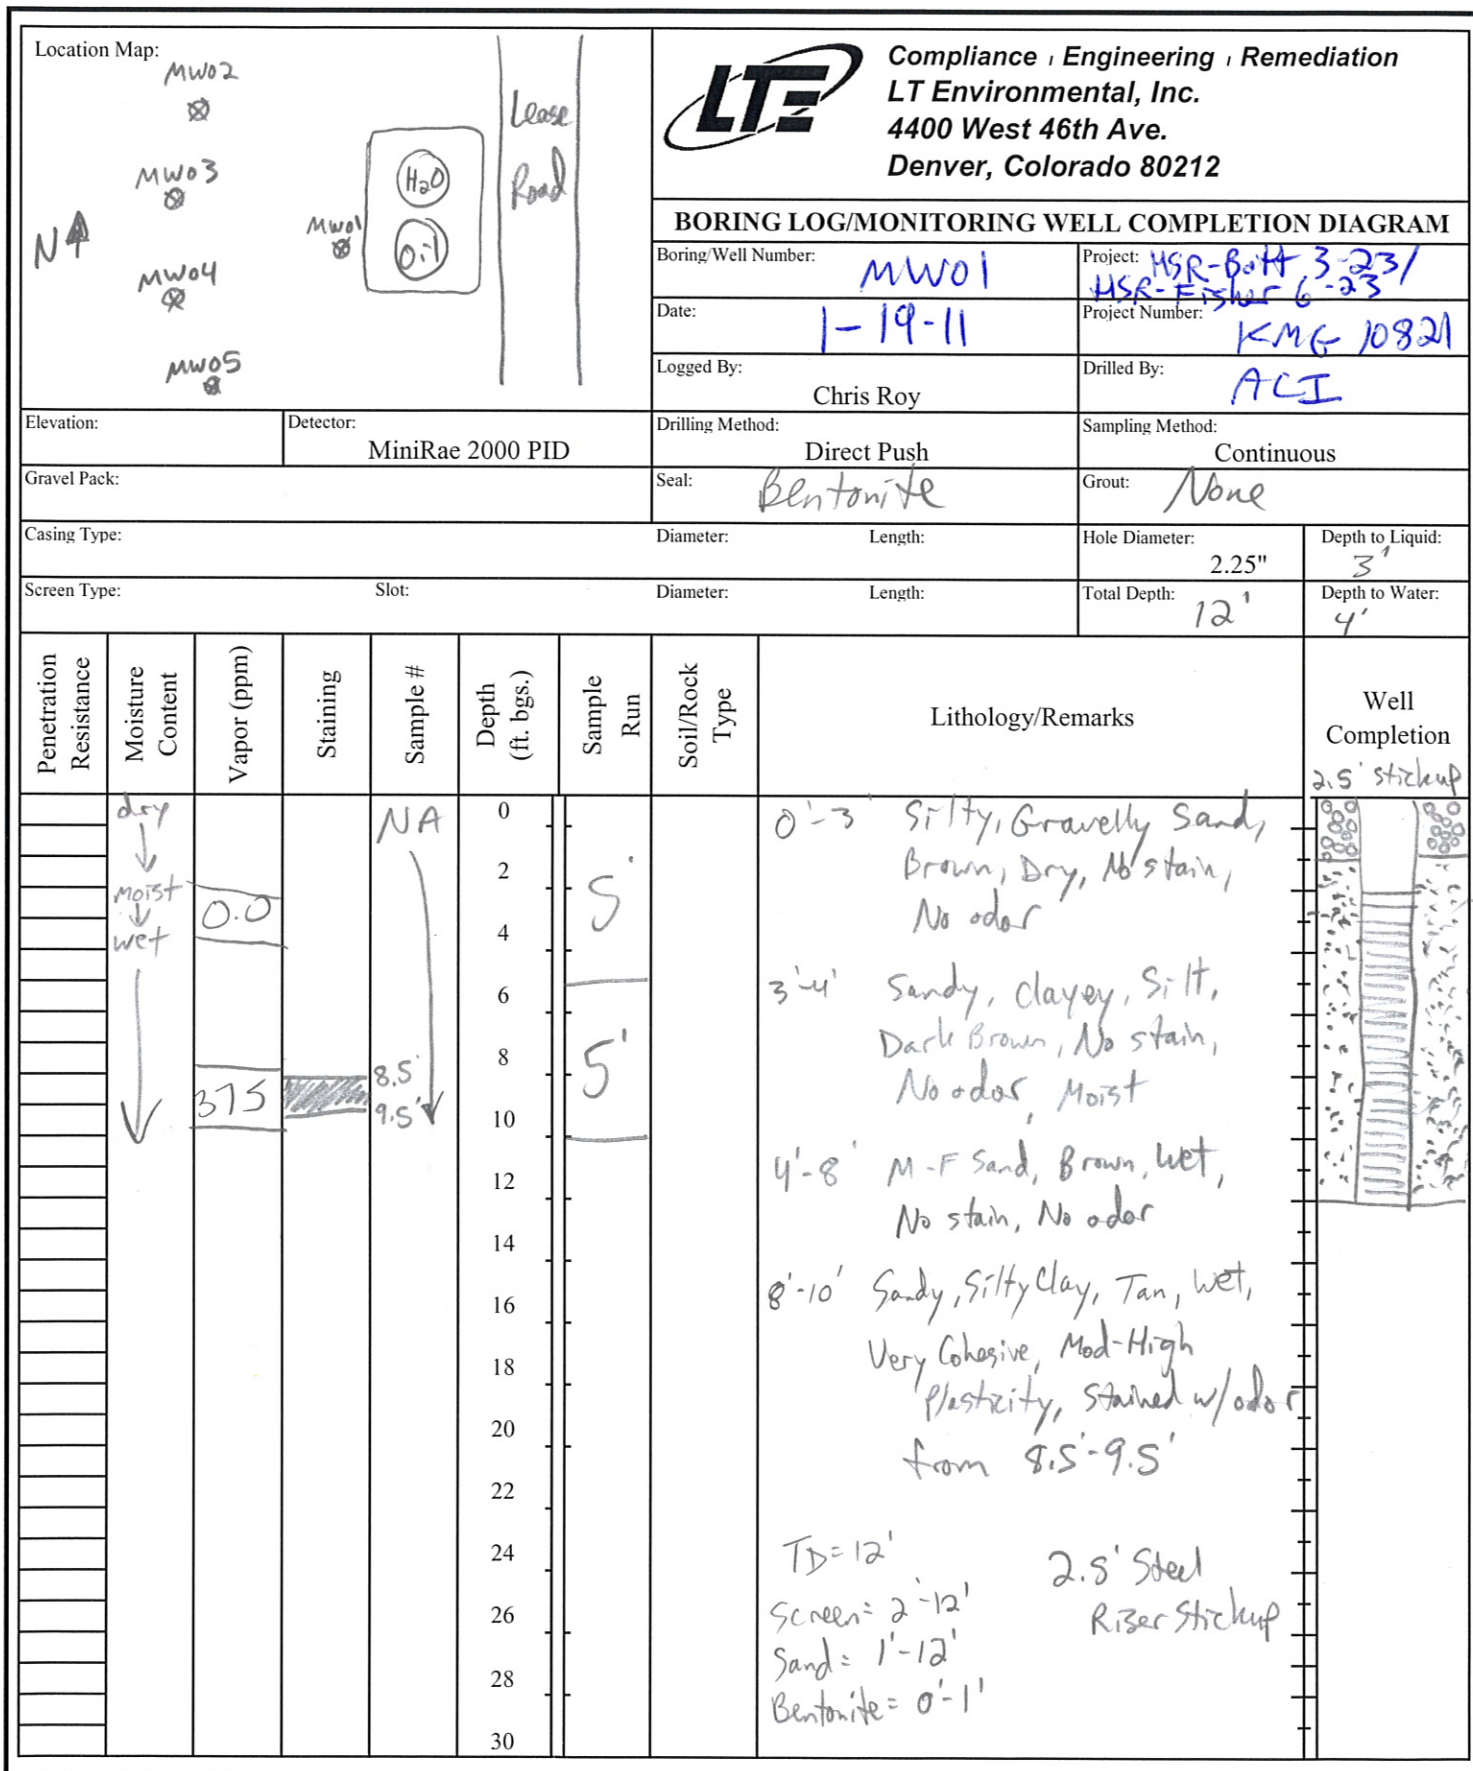 Location Map:
MW02
MW03
N
MW01
MW04
MW05
H2O
Oil
Lease
Road
LTE
Compliance Engineering Remediation
LT Environmental, Inc.
4400 West 46th Ave.
Denver, Colorado 80212
BORING LOG/MONITORING WELL COMPLETION DIAGRAM
Boring/Well Number: MW01
Project: HSR-Bott 3-23/
HSR-Fisher 6-23
Date: 1-19-11
Project Number: KMG 10821
Logged By: Chris Roy
Drilled By: ACI
Elevation:
Detector: MiniRae 2000 PID
Drilling Method: Direct Push
Sampling Method: Continuous
Gravel Pack:
Seal: Bentonite
Grout: None
Casing Type:
Diameter:
Length:
Hole Diameter: 2.25"
Depth to Liquid: 3'
Screen Type:
Slot:
Diameter:
Length:
Total Depth: 12'
Depth to Water: 4'
Penetration
Resistance
Moisture
Content
Vapor (ppm)
Staining
Sample #
Depth
(ft. bgs.)
Sample
Run
Soil/Rock
Type
Lithology/Remarks
Well
Completion
2.5' stickup
dry
moist
wet
0.0
375
NA
8.5'
9.5'
0
2
4
6
8
10
12
14
16
18
20
22
24
26
28
30
5'
5'
0'-3' Silty, Gravelly Sand,
Brown, Dry, No stain,
No odor
3'-4' Sandy, Clayey, Silt,
Dark Brown, No stain,
No odor, Moist
4'-8' M-F Sand, Brown, Wet,
No stain, No odor
8'-10' Sandy, Silty Clay, Tan, Wet,
Very Cohesive, Mod-High
Plasticity, Stained w/odor
from 8.5'-9.5'
TD=12'
Screen= 2'-12'
Sand= 1'-12'
Bentonite= 0'-1'
2.5' Steel
Riser Stickup